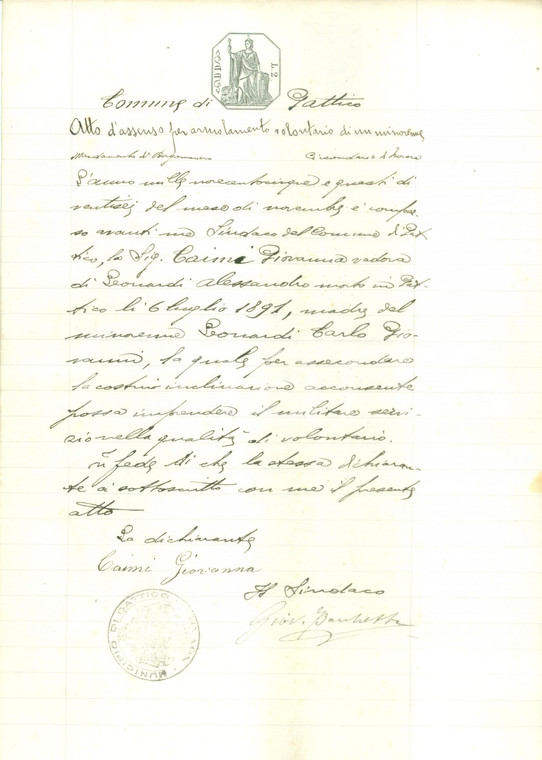 L. 2
Comune di Gattico
Atto d'assenso per arruolamento volontario di un minorenne
Mandamento di Borgomanero Circondario di Novara
L'anno mille novecentocinque e questi dì
ventisei del mese di novembre è compar-
so avanti me Sindaco del Comune di Gat-
tico, la Sig. Caimi Giovanna vedova
di Leonardi Alessandro morto in Gat-
tico li 6 luglio 1891, madre del
minorenne Leonardi Carlo Gio-
vanni, la quale per assecondare
la costui inclinazione acconsente
possa imprendere il militare servi-
zio nella qualità di volontario.
In fede di che la stessa dichiaran-
te si sottoscritto con me il presente
atto
La dichiarante
Caimi Giovanna
Il Sindaco
Giov.
MUNICIPIO DI GATTICO